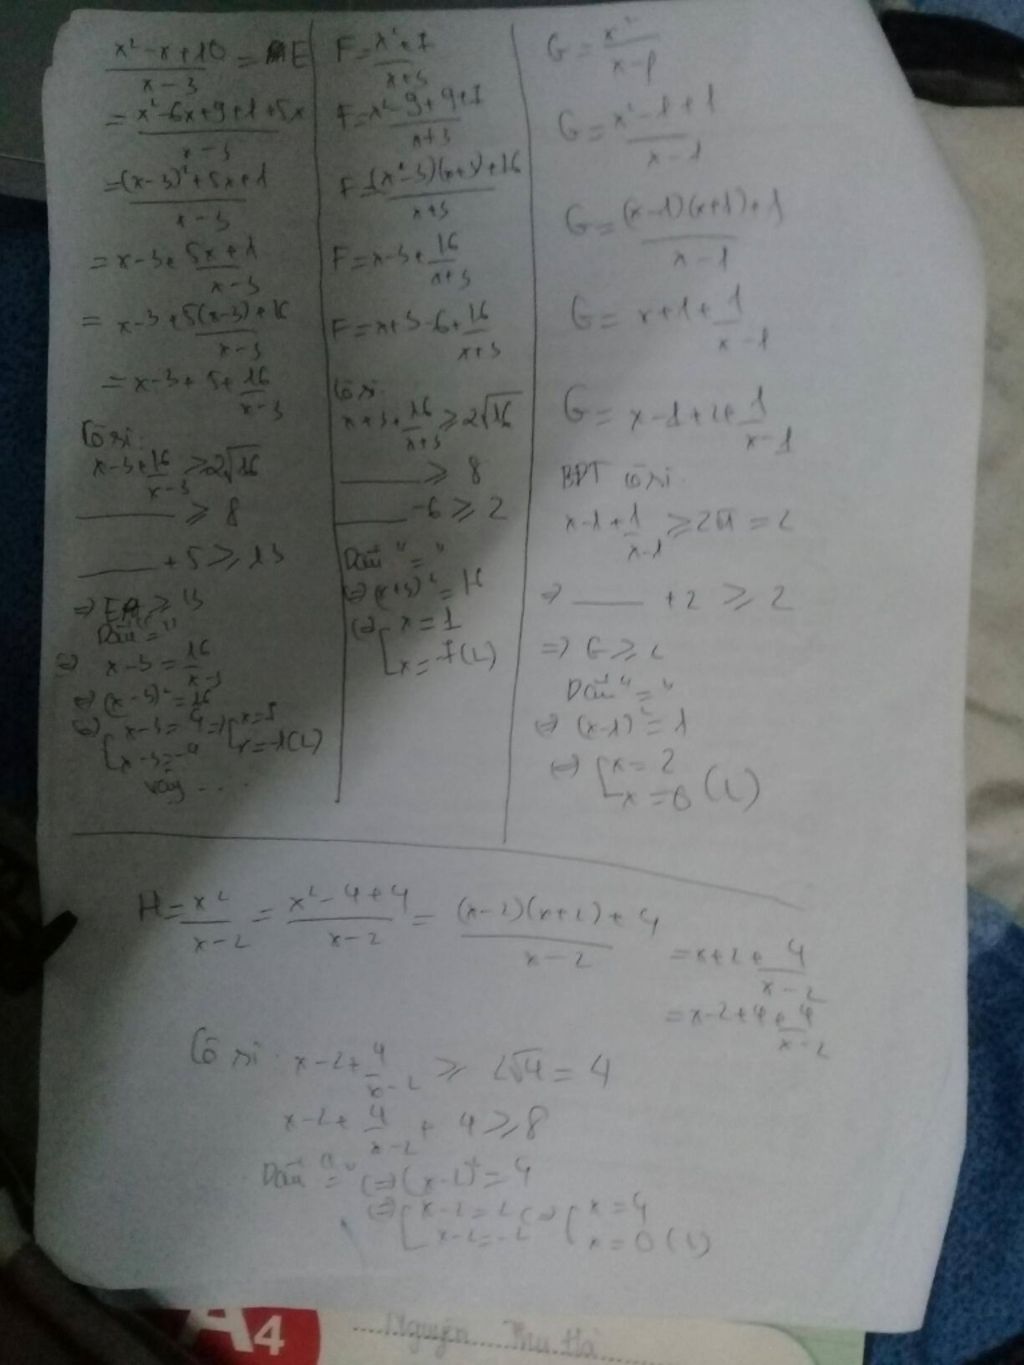 x² - x + 10 / x - 3 = E
= x² - 6x + 9 + 1 + 5x / x - 3
= (x - 3)² + 5x + 1 / x - 3
= x - 3 + 5x + 1 / x - 3
= x - 3 + 5(x - 3) + 16 / x - 3
= x - 3 + 5 + 16 / x - 3
Cô si:
x - 3 + 16 / x - 3 ≥ 2√16
____ ≥ 8
____ + 5 ≥ 13
⇒ E ≥ 13
Dấu "="
⇔ x - 3 = 16 / x - 3
⇔ (x - 3)² = 16
⇔ [ x - 3 = 4 ⇒ [ x = 7
x - 3 = -4 x = -1 (L)
Vậy ....
F = x² + 7 / x + 3
F = x² - 9 + 9 + 7 / x + 3
F = (x - 3)(x + 3) + 16 / x + 3
F = x - 3 + 16 / x + 3
F = x + 3 - 6 + 16 / x + 3
Cô si:
x + 3 + 16 / x + 3 ≥ 2√16
____ ≥ 8
____ - 6 ≥ 2
Dấu "="
⇔ (x + 3)² = 16
⇔ [ x = 1
x = -7 (L)
G = x² / x - 1
G = x² - 1 + 1 / x - 1
G = (x - 1)(x + 1) + 1 / x - 1
G = x + 1 + 1 / x - 1
G = x - 1 + 2 + 1 / x - 1
BĐT Cô si:
x - 1 + 1 / x - 1 ≥ 2√1 = 2
⇒ ____ + 2 ≥ 2
⇒ G ≥ 2
Dấu "="
⇔ (x - 1)² = 1
⇔ [ x = 2
x = 0 (L)
H = x² / x - 2 = x² - 4 + 4 / x - 2 = (x - 2)(x + 2) + 4 / x - 2
= x + 2 + 4 / x - 2
= x - 2 + 4 + 4 / x - 2
Cô si: x - 2 + 4 / x - 2 ≥ 2√4 = 4
x - 2 + 4 / x - 2 + 4 ≥ 8
Dấu "=" ⇔ (x - 2)² = 4
⇔ [ x - 2 = 2 ⇔ [ x = 4
x - 2 = -2 x = 0 (L)
A4
Nguyễn Thu Hà